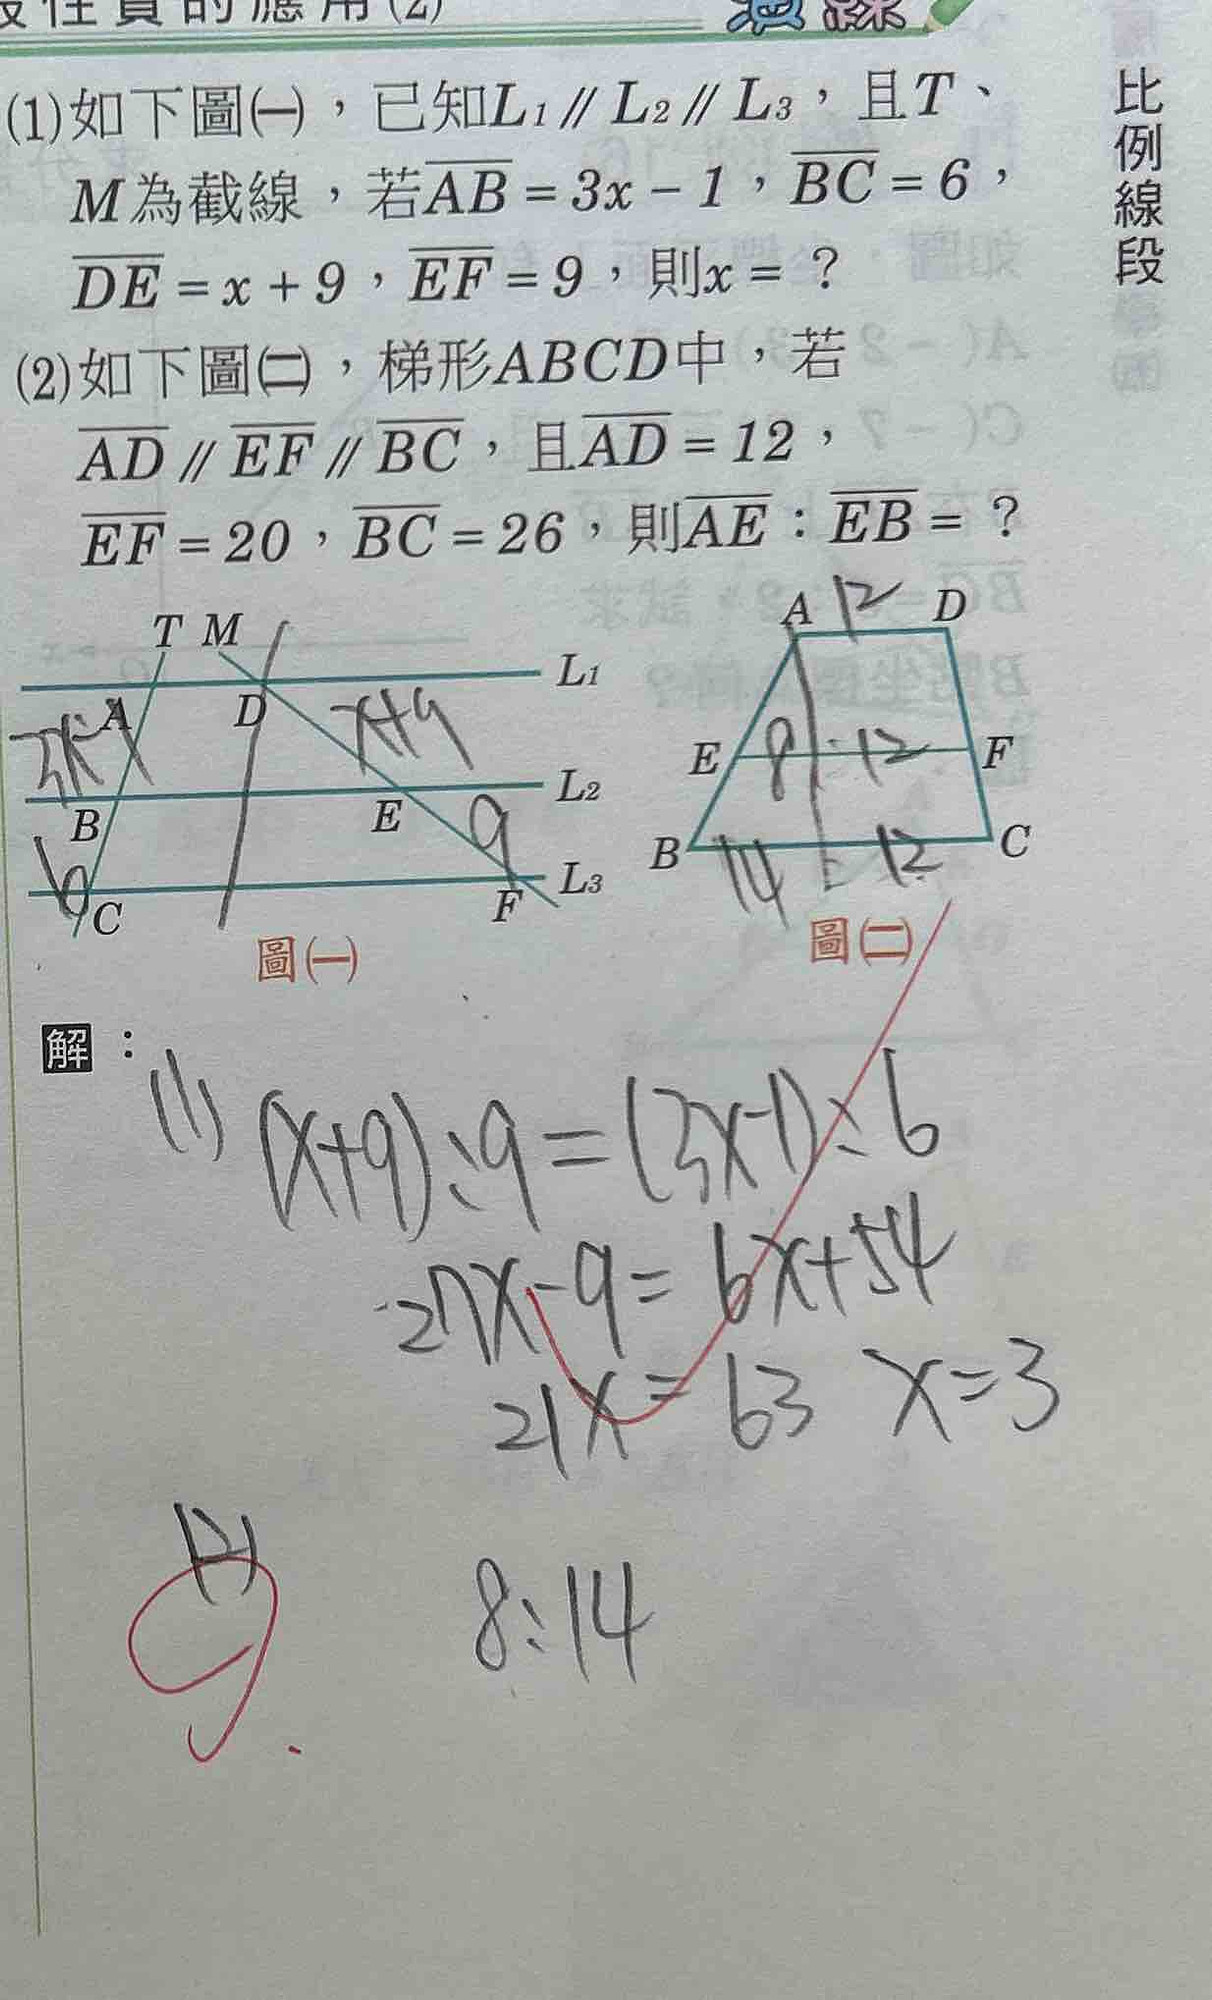 性質的應用(2)
演練
比例線段
(1)如下圖㈠，已知L1 // L2 // L3，且T、
M為截線，若AB = 3x − 1，BC = 6，
DE = x + 9，EF = 9，則x = ？
(2)如下圖㈡，梯形ABCD中，若
AD // EF // BC，且AD = 12，
EF = 20，BC = 26，則AE：EB = ？
T M
L1
A D
3x-1
x+9
L2
B E
6
9
L3
C F
圖㈠
A 12 D
E 8 : 12 F
B 14 : 12 C
圖㈡
解：
(1) (x+9):9=(3x-1):6
27x-9=6x+54
21x=63 x=3
(2)
8:14